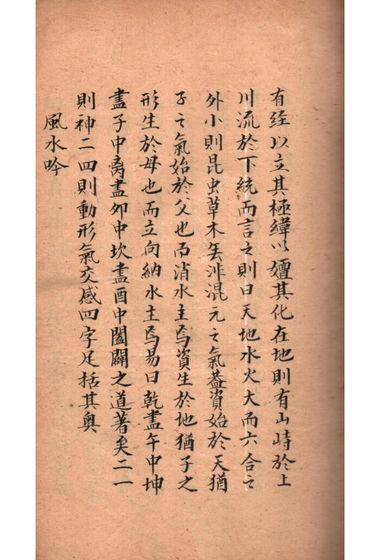 有經以立其極緯以嬗其化在地則有山峙於上
川流於下統而言之則曰天地水火大而六合之
外小則昆虫草木罔非混元之氣蓋資始於天猶
子之氣始於父也而消水主焉資生於地猶子之
形生於母也而立向納水主焉易曰乾盡午中坤
盡子中离盡卯中坎盡酉中闔闢之道著矣二一
則神二四則動形氣交感四字足括其奧
風水吟